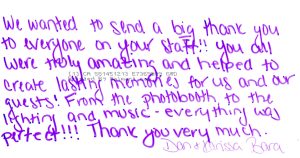 We wanted to send a big thank you
to everyone on your staff!! you all
were truly amazing and helped to
create lasting memories for us and our
guests! From the photobooth to the
lighting and music - everything was
perfect!!! Thank you very much.
Dan & Barra